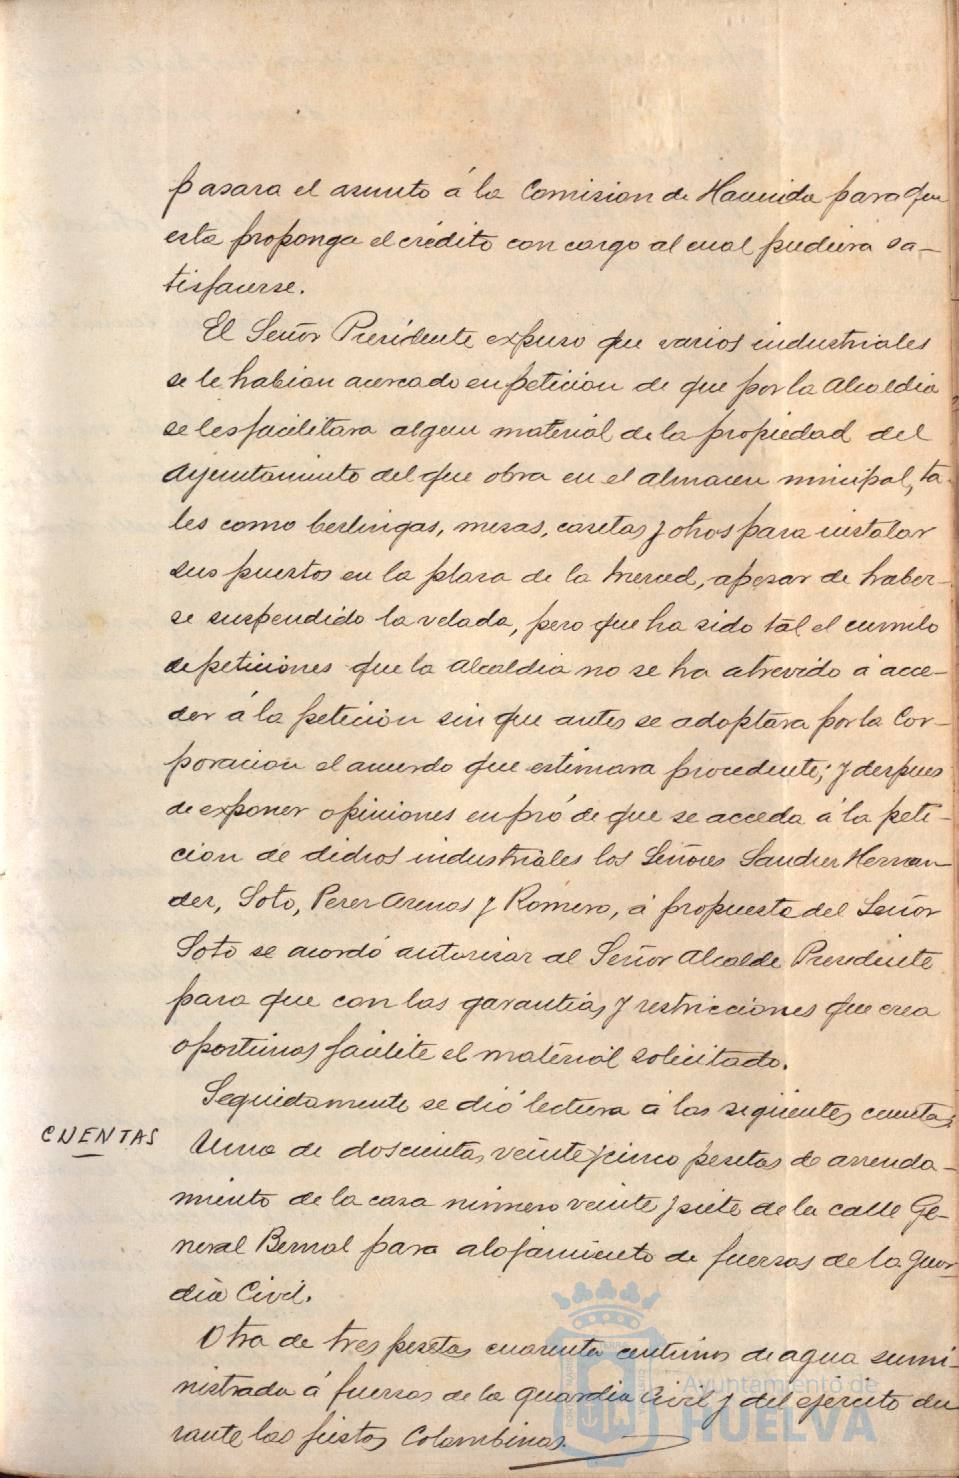 pasara el asunto á la Comision de Hacienda para que
esta proponga el crédito con cargo al cual pudiera sa-
tisfacerse.
El Señor Presidente expuso que varios industriales
se le habian acercado en peticion de que por la Alcaldia
se les facilitara algun material de la propiedad del
Ayuntamiento del que obra en el almacen municipal, ta-
les como berlingas, mesas, casetas y otros para instalar
sus puestos en la plaza de la Merced, apesar de haber-
se suspendido la velada, pero que ha sido tal el cumulo
de peticiones que la Alcaldia no se ha atrevido á acce-
der á la peticion sin que antes se adoptara por la Cor-
poracion el acuerdo que estimara procedente; y despues
de exponer opiniones en pró de que se acceda á la peti-
cion de dichos industriales los Señores Sanchez Hernan-
dez, Soto, Perez Arenas y Romero, á propuesta del Señor
Soto se acordó autorizar al Señor Alcalde Presidente
para que con las garantias y restricciones que crea
oportunas facilite el material solicitado.
Seguidamente se dió lectura á las siguientes cuentas
CUENTAS
Una de doscientas veinte y cinco pesetas de arrenda-
miento de la casa número veinte y siete de la calle Ge-
neral Bernal para alojamiento de fuerzas de la Guar-
dia Civil.
Otra de tres pesetas cuarenta centimos de agua sumi-
nistrada á fuerzas de la guardia Civil y del ejército du
rante las fiestas Colombinas.
Ayuntamiento de
HUELVA